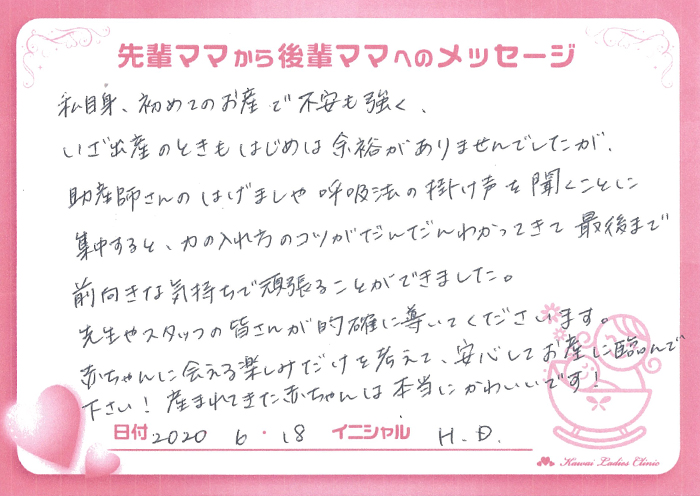 先輩ママから後輩ママへのメッセージ
私自身、初めてのお産で不安も強く、
いざ出産のときもはじめは余裕がありませんでしたが、
助産師さんのはげましや呼吸法の掛け声を聞くことに
集中すると、力の入れ方のコツがだんだんわかってきて最後まで
前向きな気持ちで頑張ることができました。
先生やスタッフの皆さんが的確に導いてくださいます。
赤ちゃんに会える楽しみだけを考えて、安心してお産に臨んで
下さい！産まれてきた赤ちゃんは本当にかわいいです！
日付 2020 6・18 イニシャル H.D.
Kawai Ladies Clinic